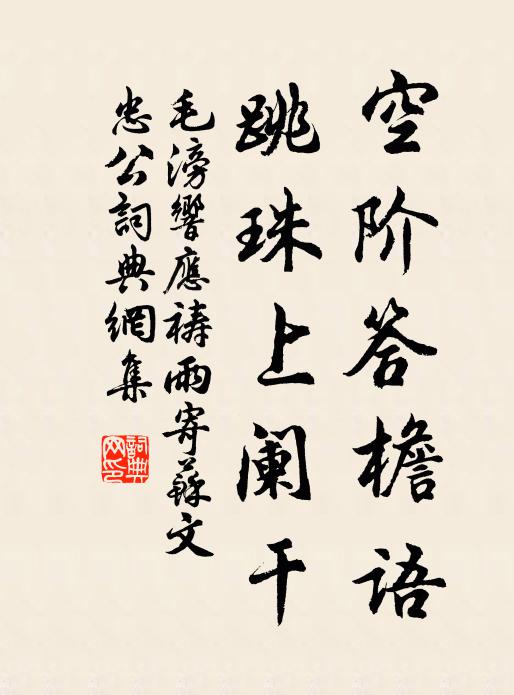 空阶答檐语
跳珠上阑干
毛滂響應禱雨寄蘇文
忠公詞典網集
詞典
网印